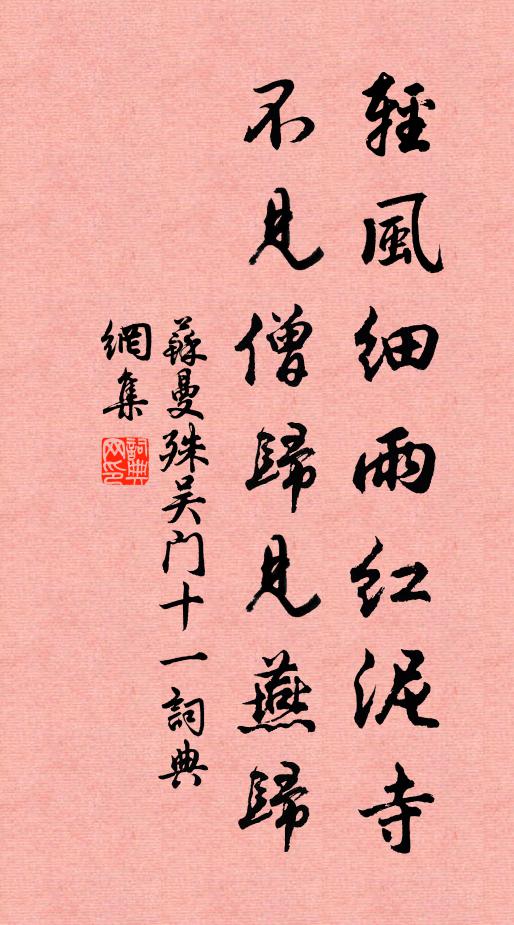 輕風細雨紅泥寺
不見僧歸見燕歸
蘇曼殊吴门十一詞典
網集
詞典網印